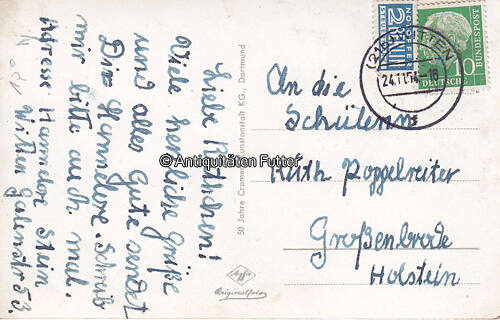 Liebe Ruthchen!
Viele herzliche Grüße
und alles Gute sendet
Dir Hannelore. Schreib
mir bitte auch mal.
Adresse Hannelore Stein
Witten Galenstr 53.
50 Jahre Cramers Kunstanstalt KG., Dortmund
Agfa
Originalfoto
NOTOPFER
2
BERLIN
DEUTSCHE
BUNDESPOST
10
24.11.54.-18
An die
Schülerin
Ruth Poppelreiter
Großenbrode
Holstein
© Antiquitäten Futter